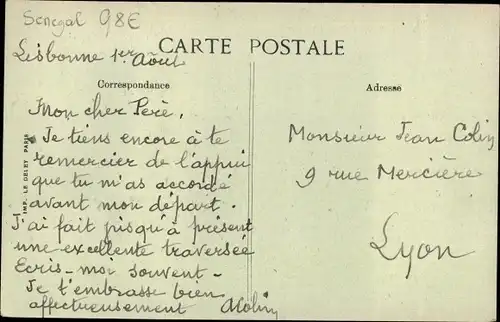 Senegal 98E
Lisbonne 1er Août
CARTE POSTALE
Correspondance
Adresse
Mon cher Père,
Je tiens encore à te
remercier de l'appui
que tu m'as accordé
avant mon départ.
J'ai fait jusqu'à présent
une excellente traversée
Ecris-moi souvent-
Je t'embrasse bien
affectueusement AColin
Monsieur Jean Colin
9 rue Mercière
Lyon
IMP. LE DELEY PARIS